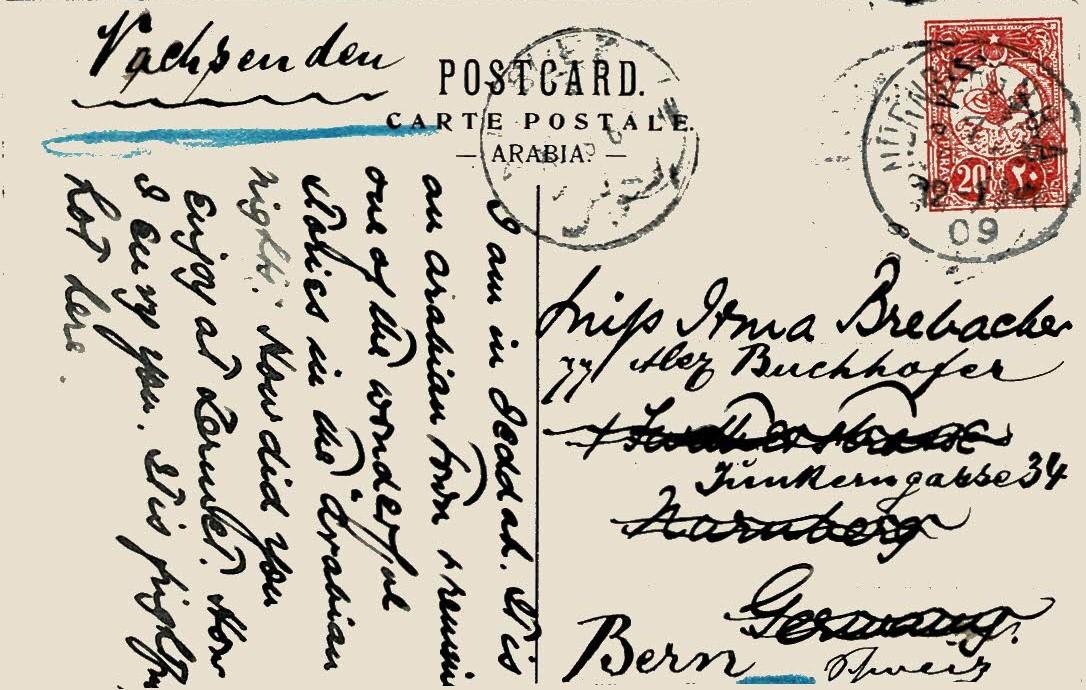 Nachsenden
POSTCARD.
CARTE POSTALE.
— ARABIA. —
20 ٢٠
09
I am in Jeddah. It is
an arabian town &
one of the wonderful
stories in the "Arabian
nights". How did you
enjoy at How
I envy you. It is
hot here
Miss Irma Brebacher
Buchhofer
Junkerngasse 34
Nurnberg
Germany.
Bern
Schweiz